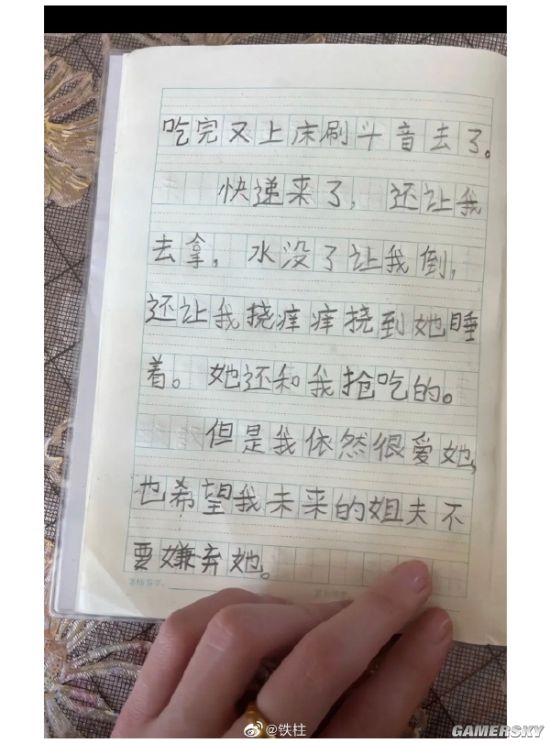 吃完又上床刷斗音去了。
快递来了，还让我
去拿，水没了让我倒，
还让我挠痒痒挠到她睡
着。她还和我抢吃的。
但是我依然很爱她，
也希望我未来的姐夫不
要嫌弃她。
@铁柱
GAMERSKY